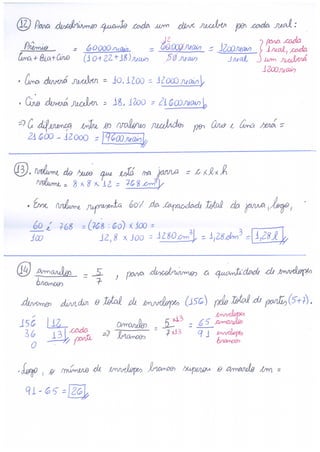 12) Para descobrirmos quanto cada um deve receber por cada real:
Prêmio = 60000 reais = 60000 reais 12 = 1200 reais } para cada 1 real, cada um receberá 1200 reais
Cina + Bia + Ciro (10+22+18) reais 50 reais 1 real
• Cina deverá receber = 10.1200 = 12000 reais
• Ciro deverá receber = 18.1200 = 21600 reais
⇒ A diferença entre os valores recebidos por Ciro e Cina será =
21600 - 12000 = 9600 reais
13) • volume do suco que está na jarra = c x l x h
volume = 8 x 8 x 12 = 768 cm³
• Esse volume representa 60% da capacidade total da jarra, logo,
60 é 768 = (768 : 60) x 100 =
100 12,8 x 100 = 1280 cm³ = 1,28 dm³ = 1,28 l
14) amarelos = 5 , para descobrirmos a quantidade de envelopes
brancos 7
devemos dividir o total de envelopes (156) pelo total de partes (5+7).
156 | 12
36 13 cada parte ⇒ amarelos = 5 x13 = 65 envelopes amarelos
0 brancos 7 x13 91 envelopes brancos
• Logo, o número de envelopes brancos superou o amarelo em =
91 - 65 = 26